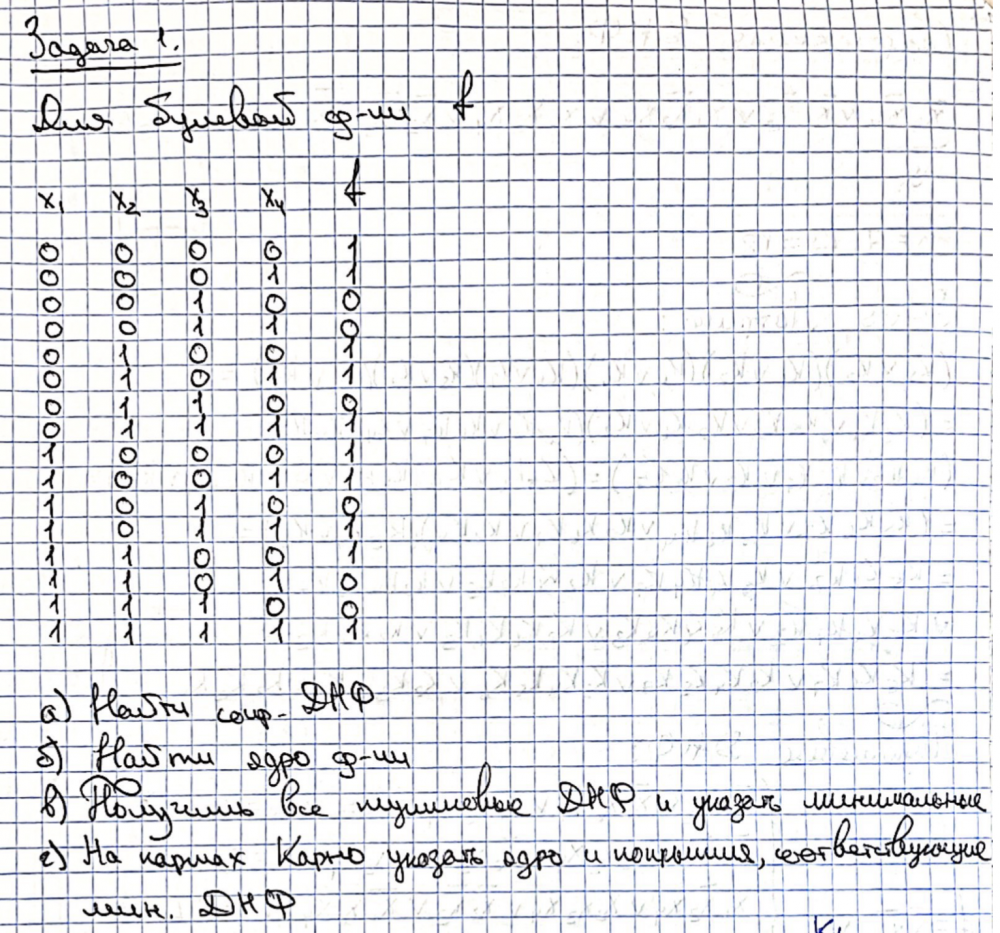 Задача 1.
Для булевой ф-ии f
x₁ x₂ x₃ x₄ f
0 0 0 0 1
0 0 0 1 1
0 0 1 0 0
0 0 1 1 0
0 1 0 0 1
0 1 0 1 1
0 1 1 0 0
0 1 1 1 1
1 0 0 0 1
1 0 0 1 1
1 0 1 0 0
1 0 1 1 1
1 1 0 0 1
1 1 0 1 0
1 1 1 0 0
1 1 1 1 1
а) Найти сокр. ДНФ
б) Найти ядро ф-ии
в) Получить все тупиковые ДНФ и указать минимальные
г) На картах Карно указать ядро и покрытия, соответствующие
мин. ДНФ